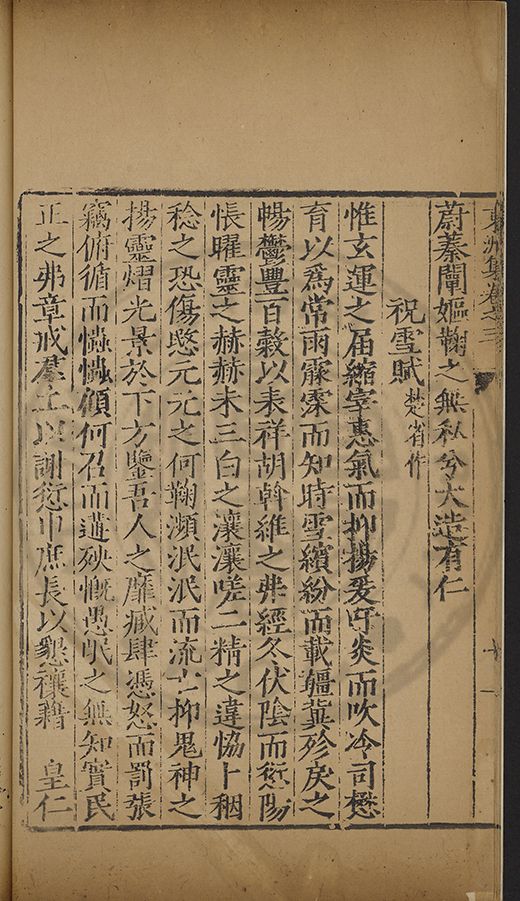 東洲集卷之三
蔚蓁闡嫗鞠之無私兮大造有仁
祝雪賦 楚省作
惟玄運之届縮宰惠氣而抑揚爰吁炎而吹冷司懋
育以爲常雨霢霂而知時雪繽紛而載疆冀殄戾之
暢鬱豐百穀以表祥胡斡維之弗經冬伏陰而愆陽
悵曜靈之赫赫未三白之瀼瀼嗟二精之違恊卜稇
稔之恐傷愍元元之何鞠瀕泯泯而流亡抑鬼神之
揚靈熠光景於下方鑒吾人之靡臧肆憑怒而罰張
竊俯循而懾懾顧何召而遘殃慨愚氓之無知實民
正之弗章戒羣工以謝愆帀庶長以懇禳藉 皇仁